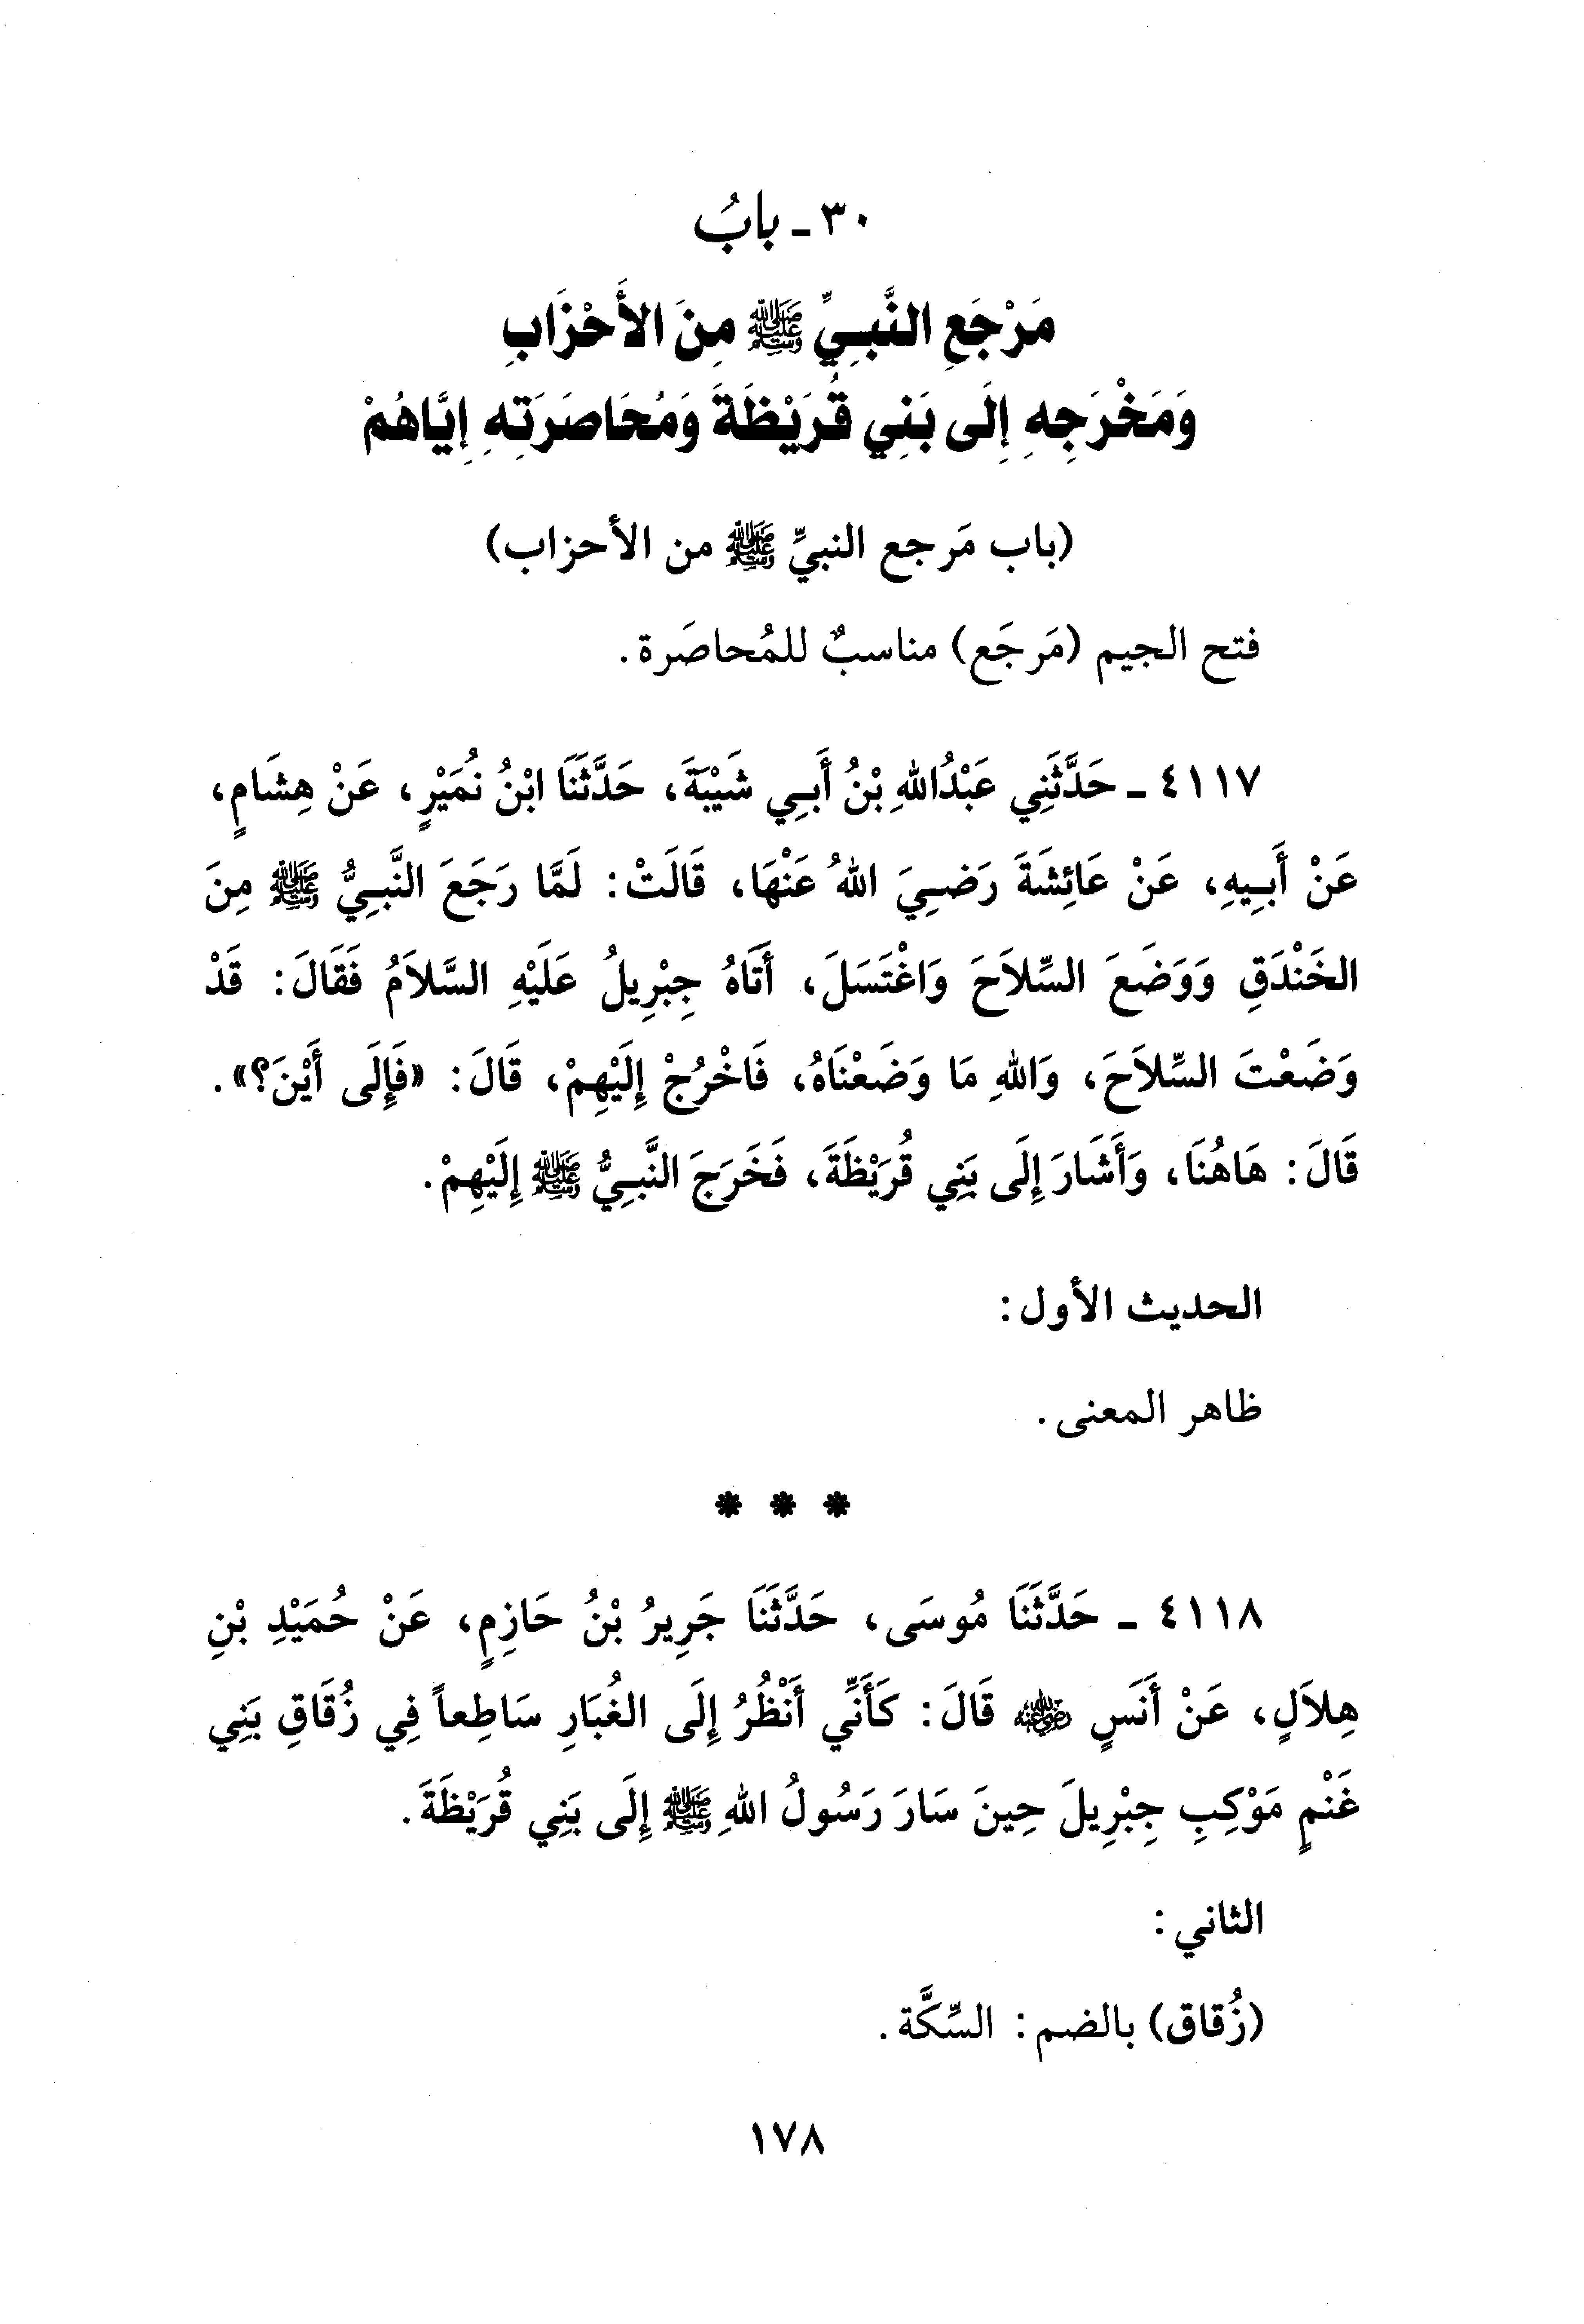 ٣٠ ـ بابُ
مَرْجَعِ النَّبِيِّ ﷺ مِنَ الأَحْزَابِ
وَمَخْرَجِهِ إِلَى بَنِي قُرَيْظَةَ وَمُحَاصَرَتِهِ إِيَّاهُمْ
(باب مَرجع النبيِّ ﷺ من الأحزاب)
فتح الجيم (مَرجَع) مناسبٌ للمُحاصَرة.
٤١١٧ ـ حَدَّثَنِي عَبْدُاللهِ بْنُ أَبِي شَيْبَةَ، حَدَّثَنَا ابْنُ نُمَيْرٍ، عَنْ هِشَامٍ،
عَنْ أَبِيهِ، عَنْ عَائِشَةَ رَضِيَ اللهُ عَنْهَا، قَالَتْ: لَمَّا رَجَعَ النَّبِيُّ ﷺ مِنَ
الخَنْدَقِ وَوَضَعَ السِّلاَحَ وَاغْتَسَلَ، أَتَاهُ جِبْرِيلُ عَلَيْهِ السَّلاَمُ فَقَالَ: قَدْ
وَضَعْتَ السِّلاَحَ، وَاللهِ مَا وَضَعْنَاهُ، فَاخْرُجْ إِلَيْهِمْ، قَالَ: «فَإِلَى أَيْنَ؟».
قَالَ: هَاهُنَا، وَأَشَارَ إِلَى بَنِي قُرَيْظَةَ، فَخَرَجَ النَّبِيُّ ﷺ إِلَيْهِمْ.
الحديث الأول:
ظاهر المعنى.
* * *
٤١١٨ ـ حَدَّثَنَا مُوسَى، حَدَّثَنَا جَرِيرُ بْنُ حَازِمٍ، عَنْ حُمَيْدِ بْنِ
هِلاَلٍ، عَنْ أَنَسٍ رضي الله عنه قَالَ: كَأَنِّي أَنْظُرُ إِلَى الغُبَارِ سَاطِعاً فِي زُقَاقِ بَنِي
غَنْمٍ مَوْكِبِ جِبْرِيلَ حِينَ سَارَ رَسُولُ اللهِ ﷺ إِلَى بَنِي قُرَيْظَةَ.
الثاني:
(زُقاق) بالضم: السِّكَّة.
١٧٨